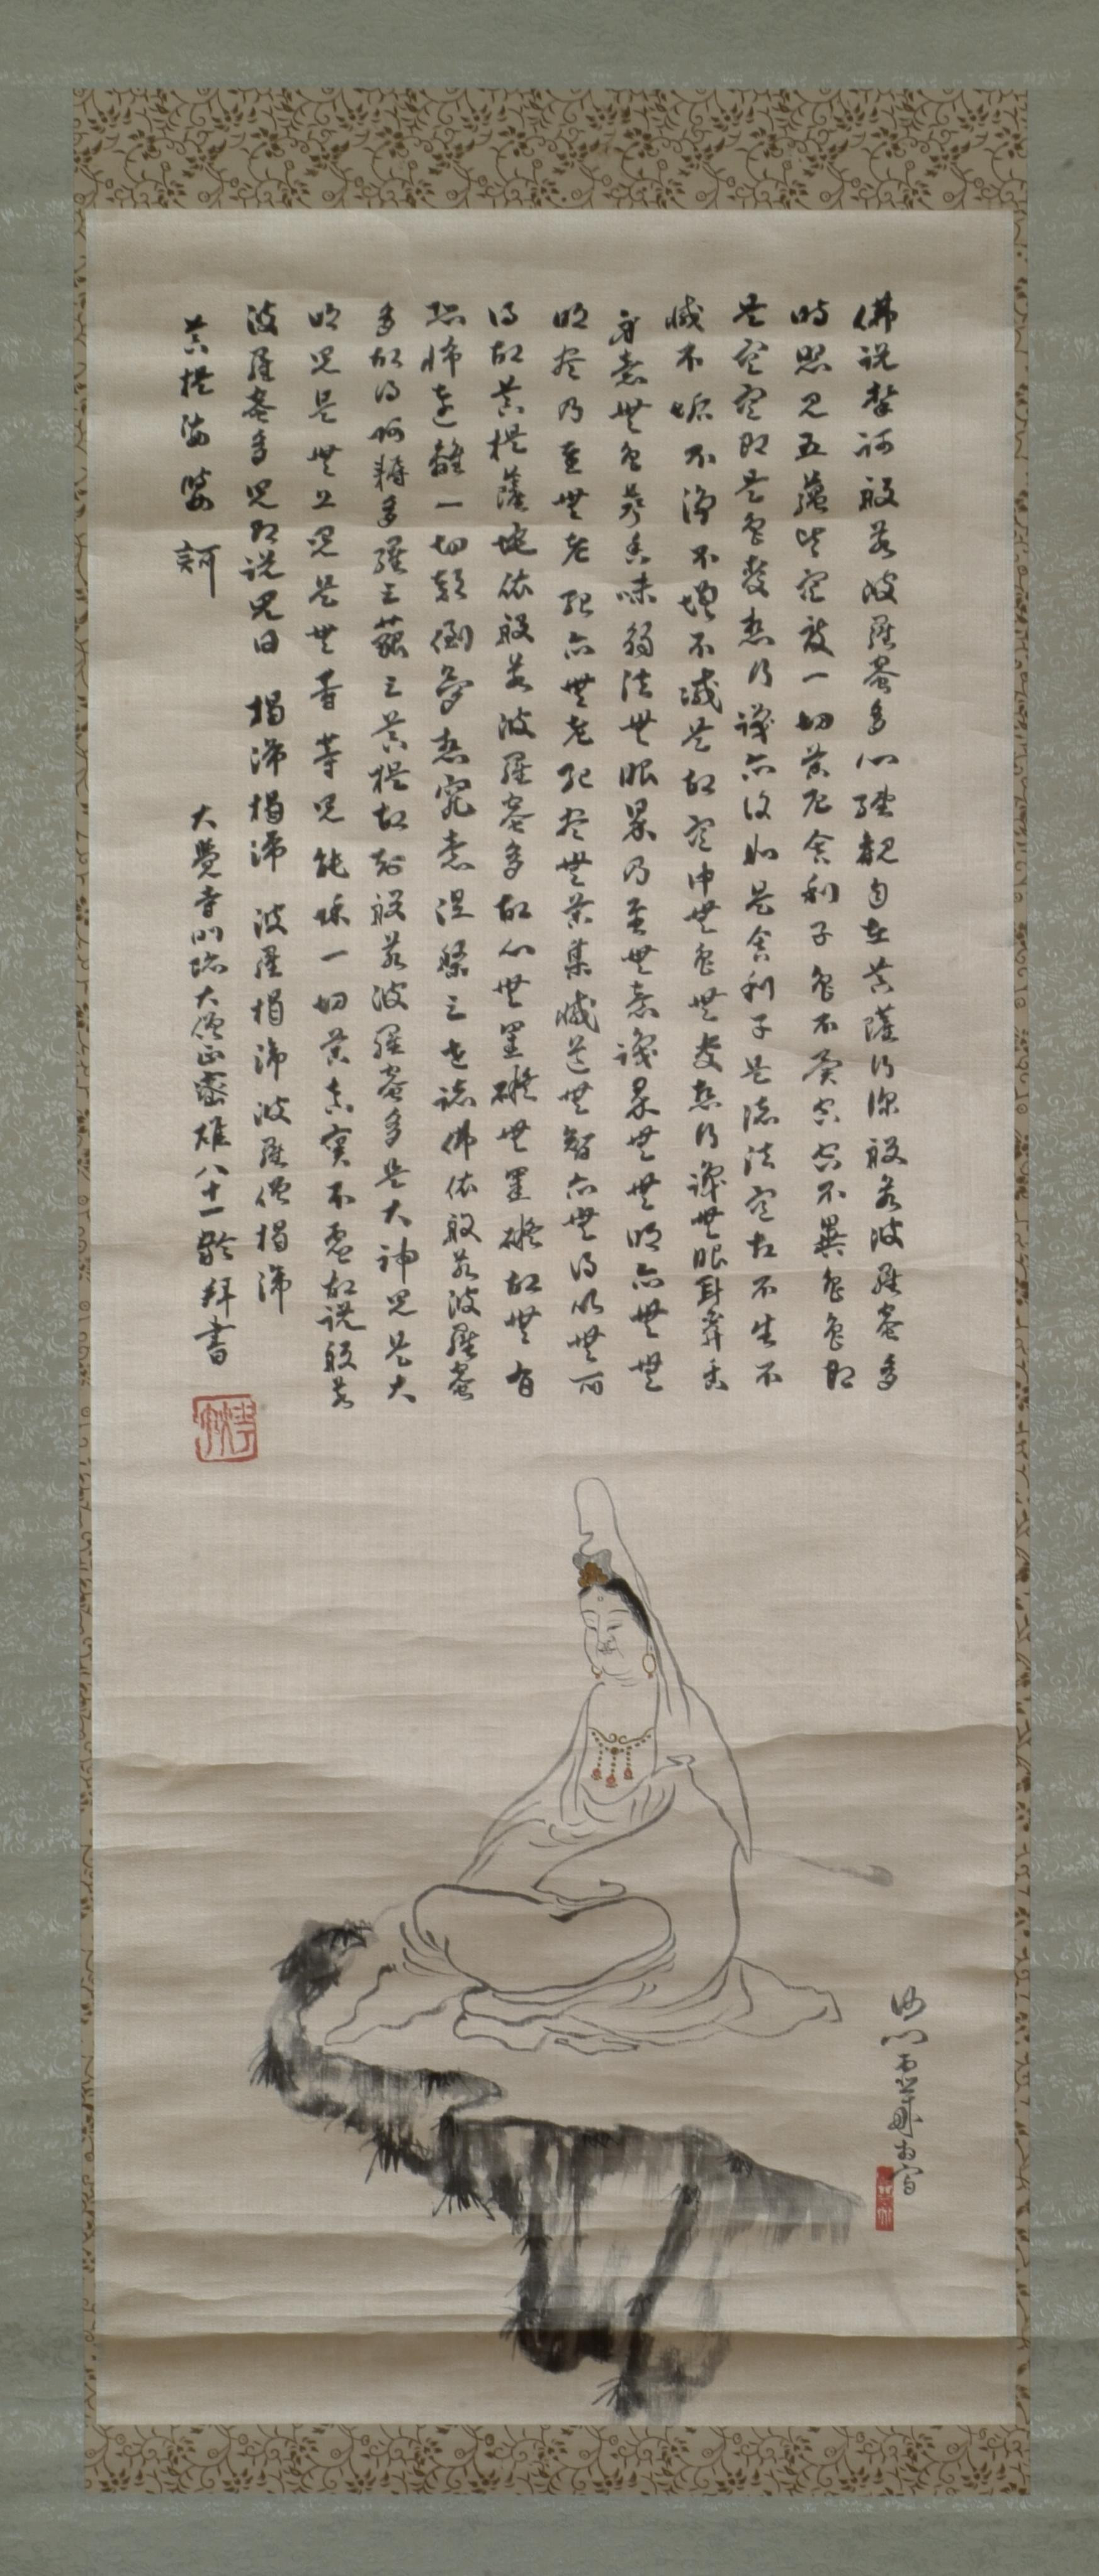 佛説摩訶般若波羅蜜多心経観自在菩薩行深般若波羅蜜多
時照見五蘊皆空度一切苦厄舎利子色不異空空不異色色即
是空空即是色受想行識亦復如是舎利子是諸法空相不生不
滅不垢不浄不増不減是故空中無色無受想行識無眼耳鼻舌
身意無色声香味触法無眼界乃至無意識界無無明亦無無
明尽乃至無老死亦無老死尽無苦集滅道無智亦無得以無所
得故菩提薩埵依般若波羅蜜多故心無罣礙無罣礙故無有
恐怖遠離一切顛倒夢想究竟涅槃三世諸佛依般若波羅蜜
多故得阿耨多羅三藐三菩提故知般若波羅蜜多是大神呪是大
明呪是無上呪是無等等呪能除一切苦真実不虚故説般若
波羅蜜多呪即説呪曰 揭諦揭諦 波羅揭諦 波羅僧揭諦
菩提娑婆訶
大覺寺門跡大僧正密雄八十一齢拜書
沙門